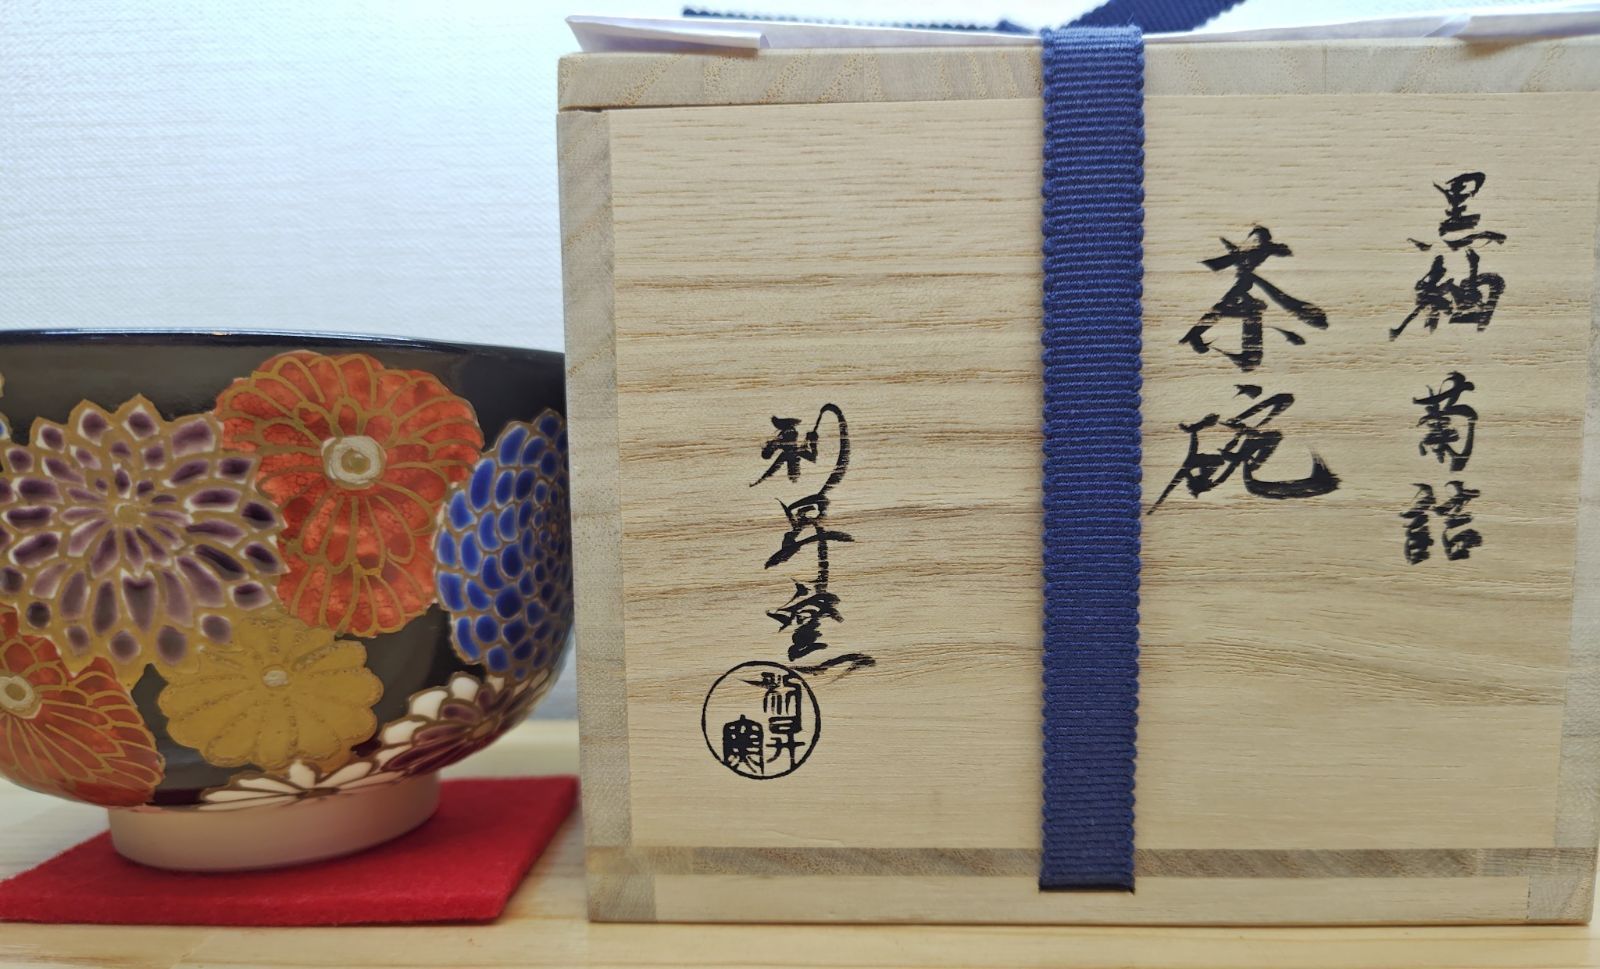 黒釉 菊詰
茶碗
利昇窯
利昇窯